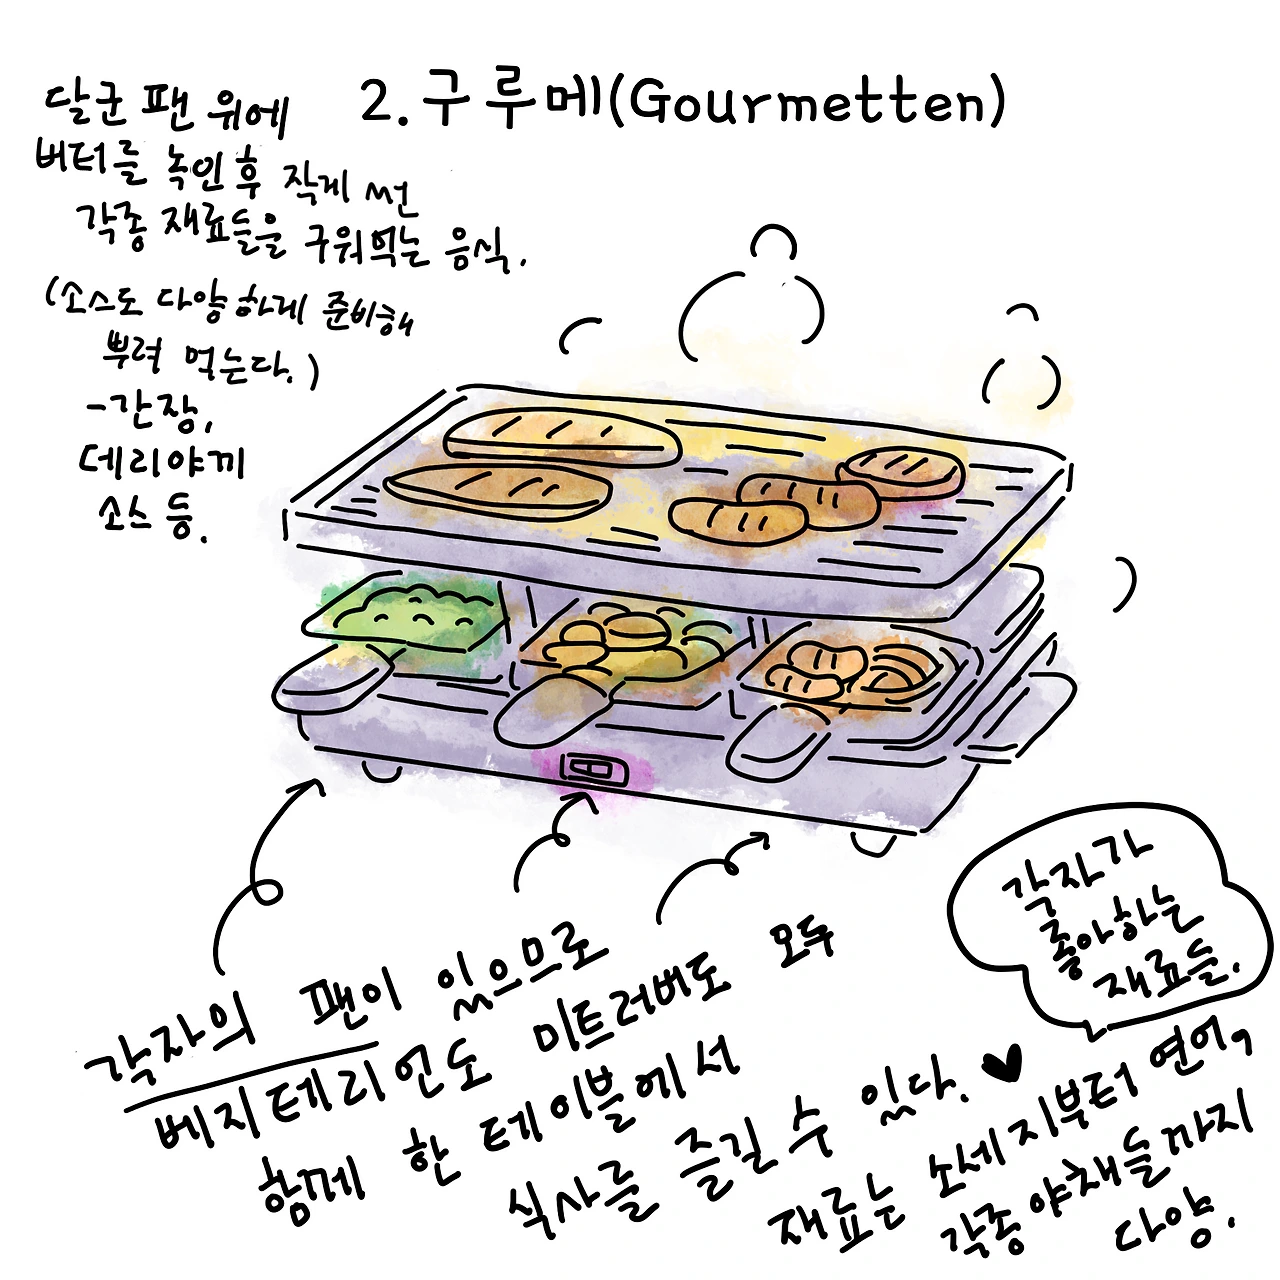 2. 구루메(Gourmetten)
달군 팬 위에
버터를 녹인 후 작게 썬
각종 재료들을 구워먹는 음식.
(소스도 다양하게 준비해
뿌려 먹는다.)
-간장,
데리야끼
소스 등.
각자의 팬이 있으므로
베지테리언도 미트러버도 모두
함께 한 테이블에서
식사를 즐길 수 있다. ♥
각자가
좋아하는
재료들.
재료는 소세지부터 연어,
각종 야채들까지
다양.